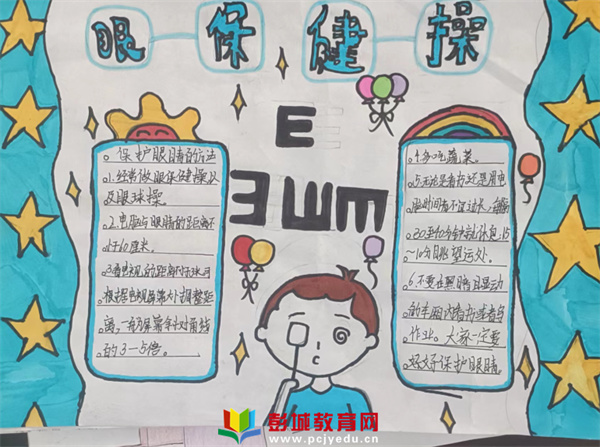 眼保健操
E
E
E
Ш
m
保护眼睛的方法
1.经常做眼保健操及
及眼球操。
2.电脑与眼睛的距离不
小于60厘米。
3.看电视的距离
根据电视屏幕大小调整距
离,一般屏幕对角线
的3—5倍。
4.多吃蔬菜。
5.无论是看书还是用电
脑时间都不宜过长,每隔
30到40分钟就休息15
~10分钟,眺望远处。
6.不要在黑暗且晃动
的车厢内看书或者写
作业。大家一定要
好好保护眼睛。
彭城教育网
www.pcjyedu.cn